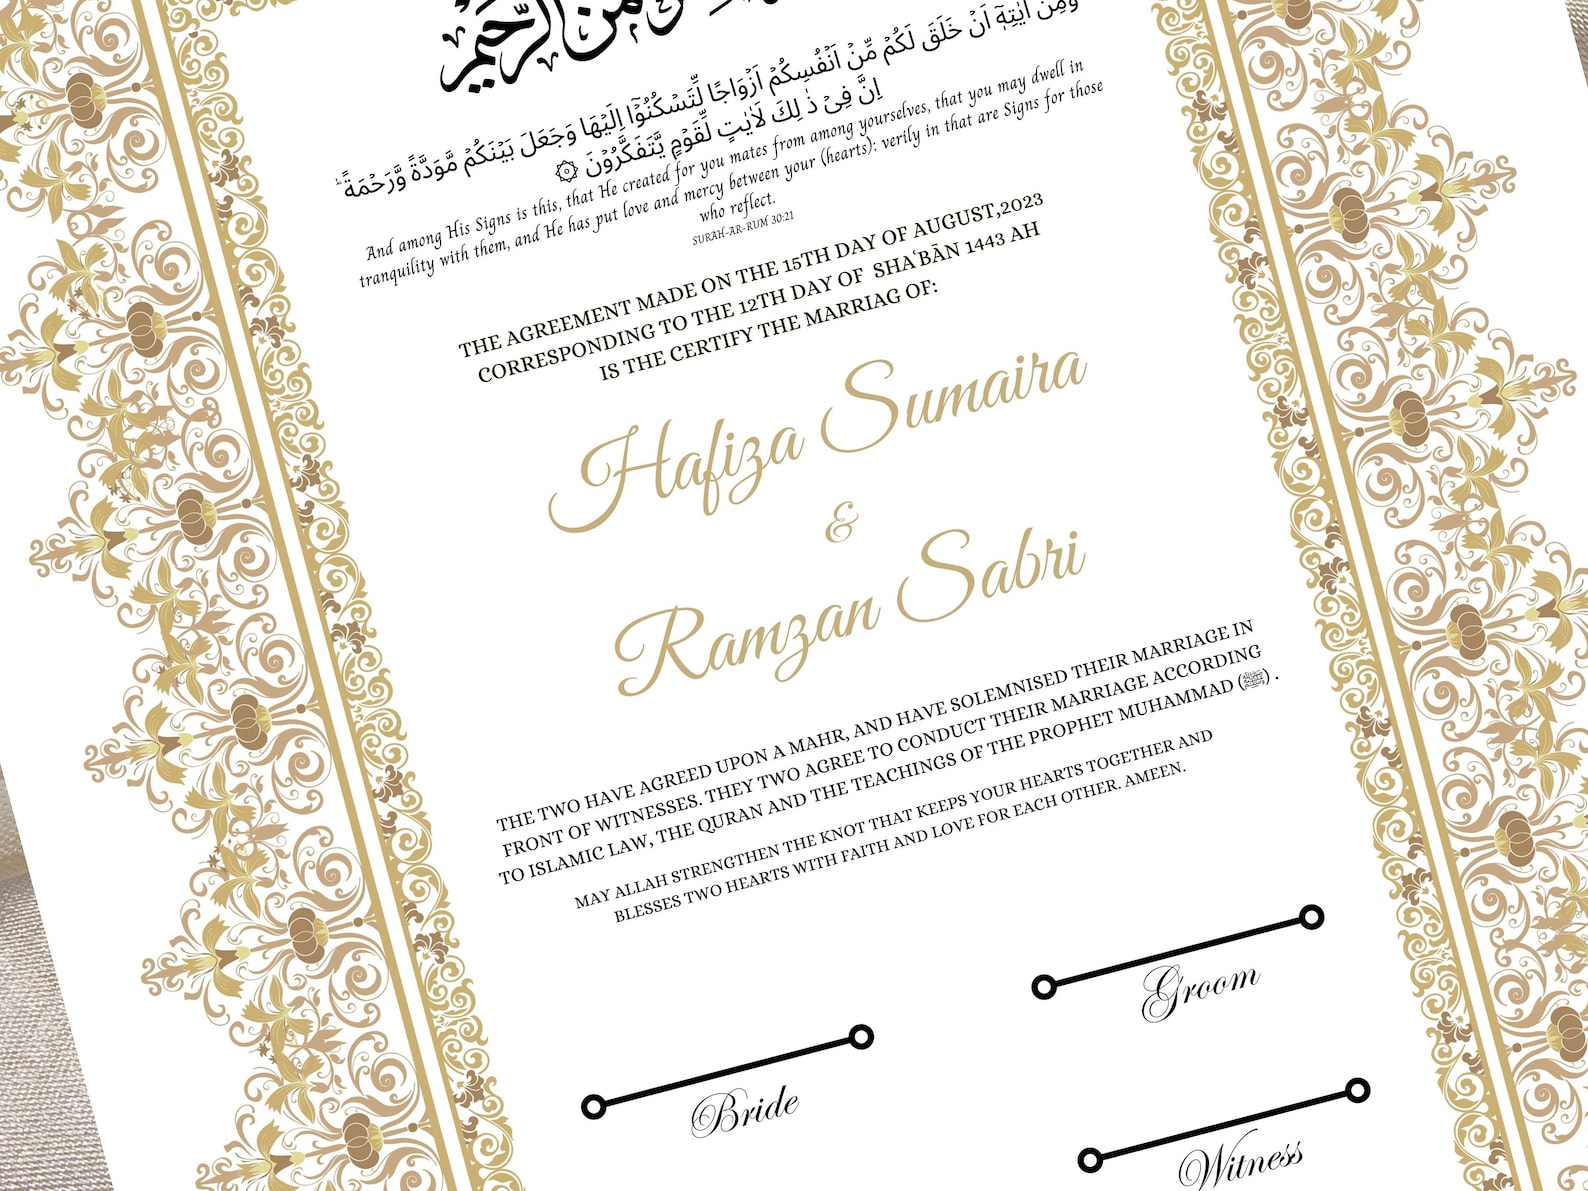 الرَّحِيْمِ
وَمِنْ اٰيٰتِهٖٓ اَنْ خَلَقَ لَكُمْ مِّنْ اَنْفُسِكُمْ اَزْوَاجًا لِّتَسْكُنُوْٓا اِلَيْهَا وَجَعَلَ بَيْنَكُمْ مَّوَدَّةً وَّرَحْمَةً ؕ
اِنَّ فِىْ ذٰ لِكَ لَاٰيٰتٍ لِّقَوْمٍ يَّتَفَكَّرُوْنَ ۞
And among His Signs is this, that He created for you mates from among yourselves, that you may dwell in
tranquility with them, and He has put love and mercy between your (hearts): verily in that are Signs for those
who reflect.
SURAH-AR-RUM 30:21
THE AGREEMENT MADE ON THE 15TH DAY OF AUGUST,2023
CORRESPONDING TO THE 12TH DAY OF SHAʿBĀN 1443 AH
IS THE CERTIFY THE MARRIAG OF:
Hafiza Sumaira
&
Ramzan Sabri
THE TWO HAVE AGREED UPON A MAHR, AND HAVE SOLEMNISED THEIR MARRIAGE IN
FRONT OF WITNESSES. THEY TWO AGREE TO CONDUCT THEIR MARRIAGE ACCORDING
TO ISLAMIC LAW, THE QURAN AND THE TEACHINGS OF THE PROPHET MUHAMMAD (ﷺ) .
MAY ALLAH STRENGTHEN THE KNOT THAT KEEPS YOUR HEARTS TOGETHER AND
BLESSES TWO HEARTS WITH FAITH AND LOVE FOR EACH OTHER. AMEEN.
Groom
Bride
Witness